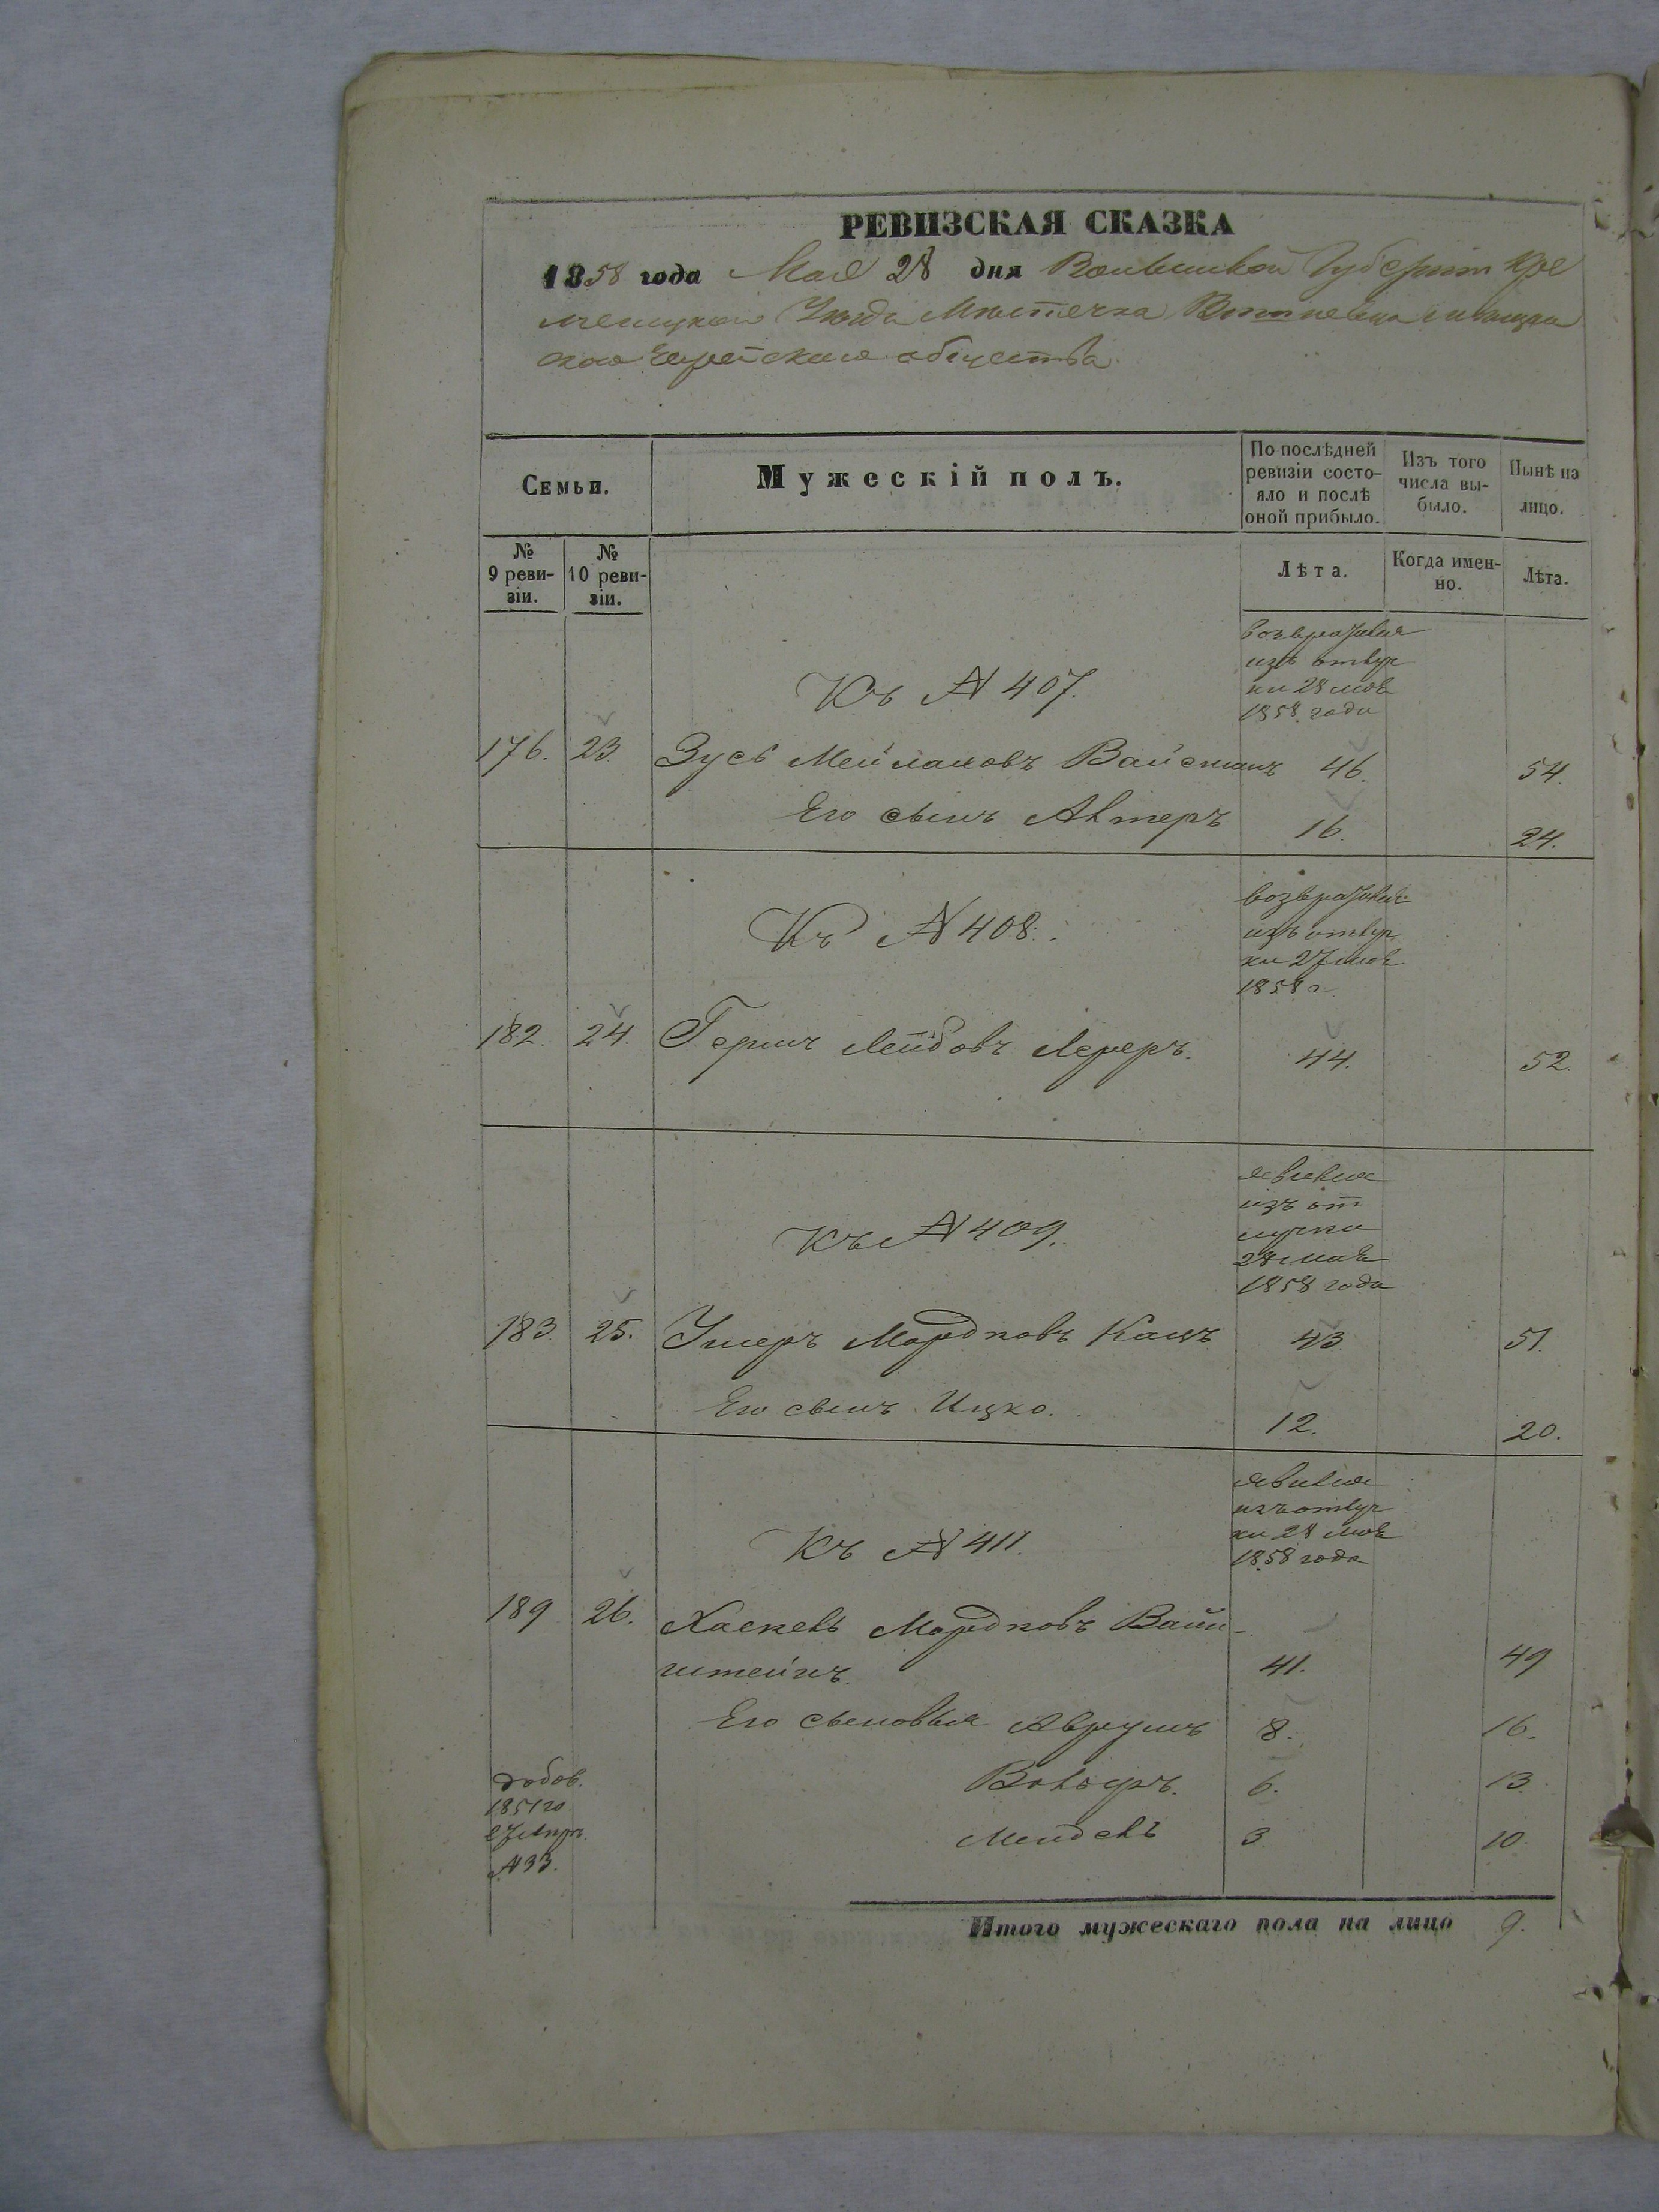 РЕВИЗСКАЯ СКАЗКА
1858 года Мая 28 дня Волынской Губерніи Кре
менецкаго Уѣзда Мѣстечка
скаго Еврейскаго общества.
Семьи.
Мужескій полъ.
По послѣдней
ревизіи состо-
яло и послѣ
оной прибыло.
Изъ того
числа вы-
было.
Нынѣ на
лицо.
№
9 реви-
зіи.
№
10 реви-
зіи.
Лѣта.
Когда имен-
но.
Лѣта.
Къ № 407.
возвратился
изъ отлуч
ки 28 мая
1858 года
176. 23. Зусь Вайсманъ 46. 54.
Его сынъ Алтеръ 16. 24.
Къ № 408.
возвратился
изъ отлуч
ки 27 мая
1858 г.
182. 24. Гершъ Лейбовъ Лереръ. 44. 52.
Къ № 409.
явился
изъ от
лучки
28 мая
1858 года
183. 25. Ушеръ Мордковъ Кацъ 43 51.
Его сынъ Ицко. 12. 20.
Къ № 411.
явился
изъ отлуч
ки 28 мая
1858 года
189 26. Хаскель Мордковъ Вайн-
штейнъ. 41. 49
Его сыновья Аврумъ 8. 16.
6. 13.
Мендель 3. 10.
добов.
1851 го
27 Апр.
№ 33.
Итого мужескаго пола на лицо 9.